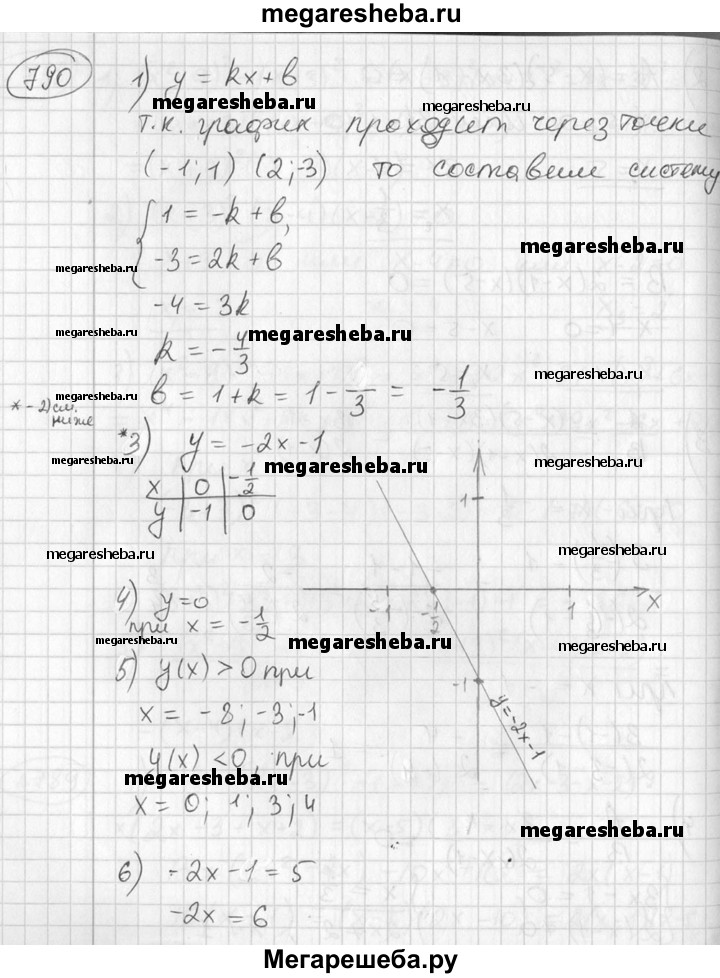 megaresheba.ru
790
1) y = kx + b
megaresheba.ru megaresheba.ru
т.к. график проходит через точки
(-1; 1) (2; -3) то составим систему
{ 1 = -k + b,
megaresheba.ru
-3 = 2k + b
megaresheba.ru
-4 = 3k
megaresheba.ru megaresheba.ru
k = -4/3
megaresheba.ru
megaresheba.ru
b = 1 + k = 1 - /3 = -1/3
* - 2) см. ниже
*3) y = -2x - 1
megaresheba.ru megaresheba.ru megaresheba.ru
x | 0 | -1/2
y | -1 | 0
1
megaresheba.ru megaresheba.ru
4) y = 0
при x = -1/2
-1 -1/2 1 x
megaresheba.ru megaresheba.ru megaresheba.ru
5) y(x) > 0 при
x = -8; -3; -1
-1
y = -2x - 1
y(x) < 0, при
megaresheba.ru
x = 0; 1; 3; 4
megaresheba.ru
6) -2x - 1 = 5
-2x = 6
Мегарешеба.ру